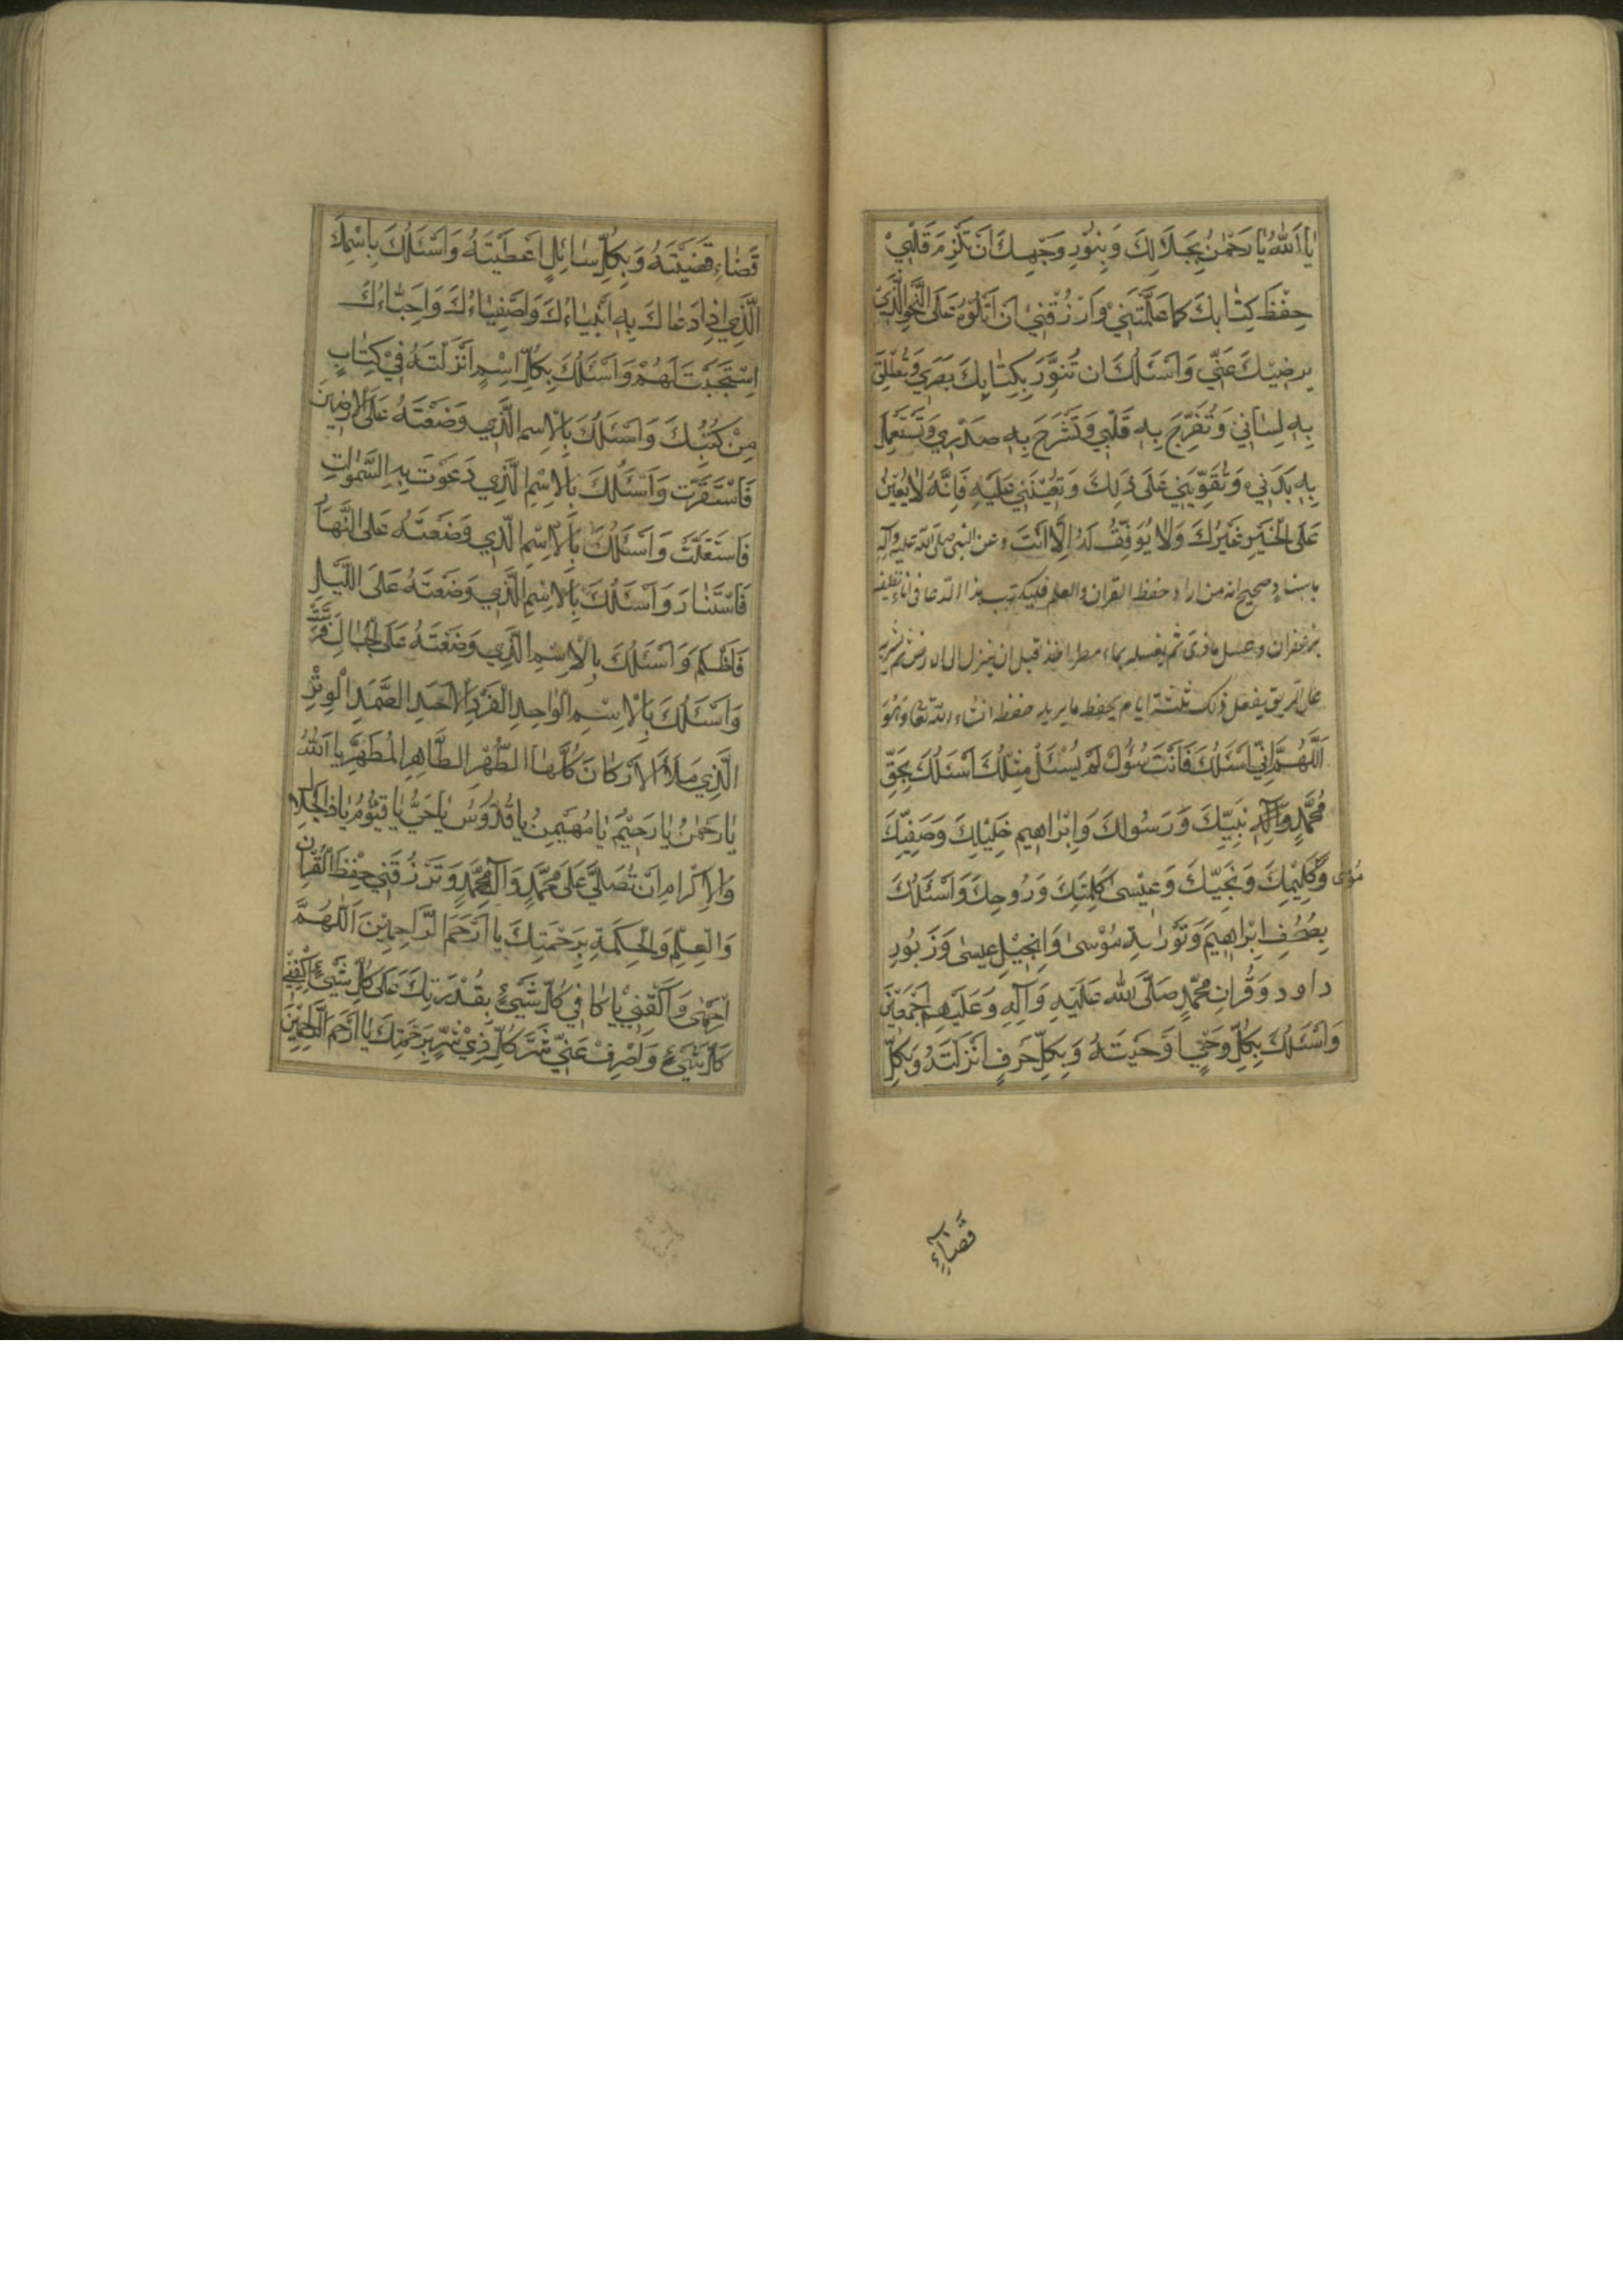 يا اَللهُ يا رَحْمٰنُ بِجَلالِكَ وَبِنُورِ وَجْهِكَ اَنْ تُلْزِمَ قَلْبِيْ
حِفْظَ كِتابِكَ كما عَلَّمْتَنِيْ وَارْزُقْنِيْ اَنْ اَتْلُوَهُ عَلَى النَّحْوِ الَّذِيْ
يرضيكَ عَنِّي وَاَسْئَلُكَ ان تُنَوِّرَ بِكِتٰابِكَ بَصَرِي وَتُطْلِقَ
بِهِ لِسٰانِي وَتُفَرِّجَ بِهِ قَلْبِي وَتَشْرَحَ بِهِ صَدْرِي وَتَسْتَعْمِلَ
بِهِ بَدَنِي وَتُقَوِّيَنِي عَلَى ذٰلِكَ وَتُعِيْنَنِي عَلَيْهِ فَاِنَّهُ لا يُعِيْنُ
عَلَى الْخَيْرِ غَيْرُكَ وَلا يُوَفِّقُ لَهُ اِلَّا اَنْتَ وعن النبى صلى الله عليه وآله
باسناد صحيح انه من اراد حفظ القران والعلم فليكتب هذا الدعا فى اناء نظيف
بزعفران وعسل ماذى ثم يغسله بماء مطر اخذ قبل ان ينزل الى الارض ثم يشربه
على الريق يفعل ذلك ثلثة ايام يحفظ ما يريد حفظه انشاء الله تعا وَهُوَ
اَللّٰهُمَّ اِنِّي اَسْئَلُكَ فَاَنْتَ مَسْؤُلٌ لَمْ يُسْئَلْ مِثْلُكَ اَسْئَلُكَ بِحَقِّ
مُحَمَّدٍ وَآلِهِ نَبِيِّكَ وَرَسُولِكَ وَاِبْرَاهِيم خَلِيْلِكَ وَصَفِيِّكَ
وَمُوسٰى كَلِيْمِكَ وَنَجِيِّكَ وَعِيْسىٰ كَلِمَتِكَ وَرُوحِكَ وَاَسْئَلُكَ
بِصُحُفِ اِبْرٰاهِيمَ وَتَوْرٰيةِ مُوْسىٰ وَاِنْجِيْلِ عيسىٰ وَزَبُورِ
داود وَقُرانِ مُحَمَّدٍ صَلَّى الله عَلَيْهِ وَآلِهِ وَعَلَيْهِمْ اَجْمَعِيْنَ
وَاَسْئَلُكَ بِكُلِّ وَحْيٍ اَوْحَيْتَهُ وَبِكُلِّ حَرْفٍ اَنْزَلْتَهُ وَبِكُلِّ
قَضٰاءٍ
قَضٰاءٍ قَضَيْتَهُ وَبِكُلِّ سٰائِلٍ اَعْطَيْتَهُ وَاَسْئَلُكَ بِاسْمِكَ
الَّذِي اِذٰا دَعٰاكَ بِهِ اَنْبِيٰاءُكَ وَاَصْفِيٰاءُكَ وَاَحِبّٰاءُكَ
اِسْتَجَبْتَ لَهُمْ وَاَسْئَلُكَ بِكُلِّ اِسْمٍ اَنْزَلْتَهُ فِيْ كِتٰابٍ
مِنْ كُتُبِكَ وَاَسْئَلُكَ بِالْاِسْمِ الَّذِي وَضَعْتَهُ عَلَى الْاَرَضِيْنَ
فَاسْتَقَرَّتْ وَاَسْئَلُكَ بِالْاِسْمِ الَّذِي دَعَوْتَ بِهِ السَّمٰوٰاتِ
فَاسْتَقَلَّتْ وَاَسْئَلُكَ بِالْاِسْمِ الَّذِي وَضَعْتَهُ عَلَى النَّهٰارِ
فَاسْتَنٰارَ وَاَسْئَلُكَ بِالْاِسْمِ الَّذِي وَضَعْتَهُ عَلَى اللَّيْلِ
فَاَظْلَمَ وَاَسْئَلُكَ بِالْاِسْمِ الَّذِي وَضَعْتَهُ عَلَى الْجِبٰالِ فَرَسَتْ
وَاَسْئَلُكَ بِالْاِسْمِ الْوٰاحِدِ الْفَرْدِ الْاَحَدِ الصَّمَدِ الْوِتْرِ
الَّذِي مَلَاَ الْاَرْكٰانَ كُلَّهٰا الطُّهْرِ الطَّاهِرِ الْمُطَهَّرِ يا اَللهُ
يٰا رَحْمٰنُ يٰا رَحِيْمُ يٰا مُهَيْمِنُ يا قُدُّوسُ يٰا حَيُّ يا قَيُّومُ يٰا ذَا الْجَلٰالِ
وَالْاِكْرٰامِ اَنْ تُصَلِّيَ عَلٰى مُحَمَّدٍ وَآلِ مُحَمَّدٍ وَتَرْزُقَنِي حِفْظَ الْقُرْاٰنِ
وَالْعِلْمِ وَالْحِكْمَةِ بِرَحْمَتِكَ يا اَرْحَمَ الرَّاحِمِيْنَ اَللّٰهُمَّ
اِرْحَمْنِى وَاكْفِنِيْ يٰا كٰافِيَ كُلِّ شَيْءٍ بِقُدْرَتِكَ عَلَى كُلِّ شَيْءٍ اِكْفِنِيْ
كُلَّ شَيْءٍ وَاصْرِفْ عَنِّي شَرَّ كُلِّ ذِيْ شَرٍّ بِرَحْمَتِكَ يٰا اَرْحَمَ الرَّاحِمِيْنَ